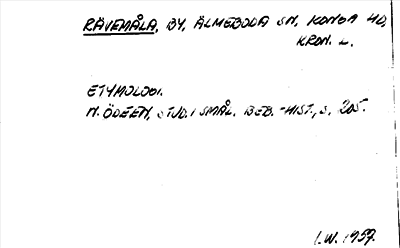 RÄVEMÅLA, BY, ÄLMEBODA SN, KONGA HD,
KRON. L.
ETYMOLOGI.
N. ÖDEEN, STUD. I SMÅL. BEB.-HIST., S. 205.
I.W. 1957